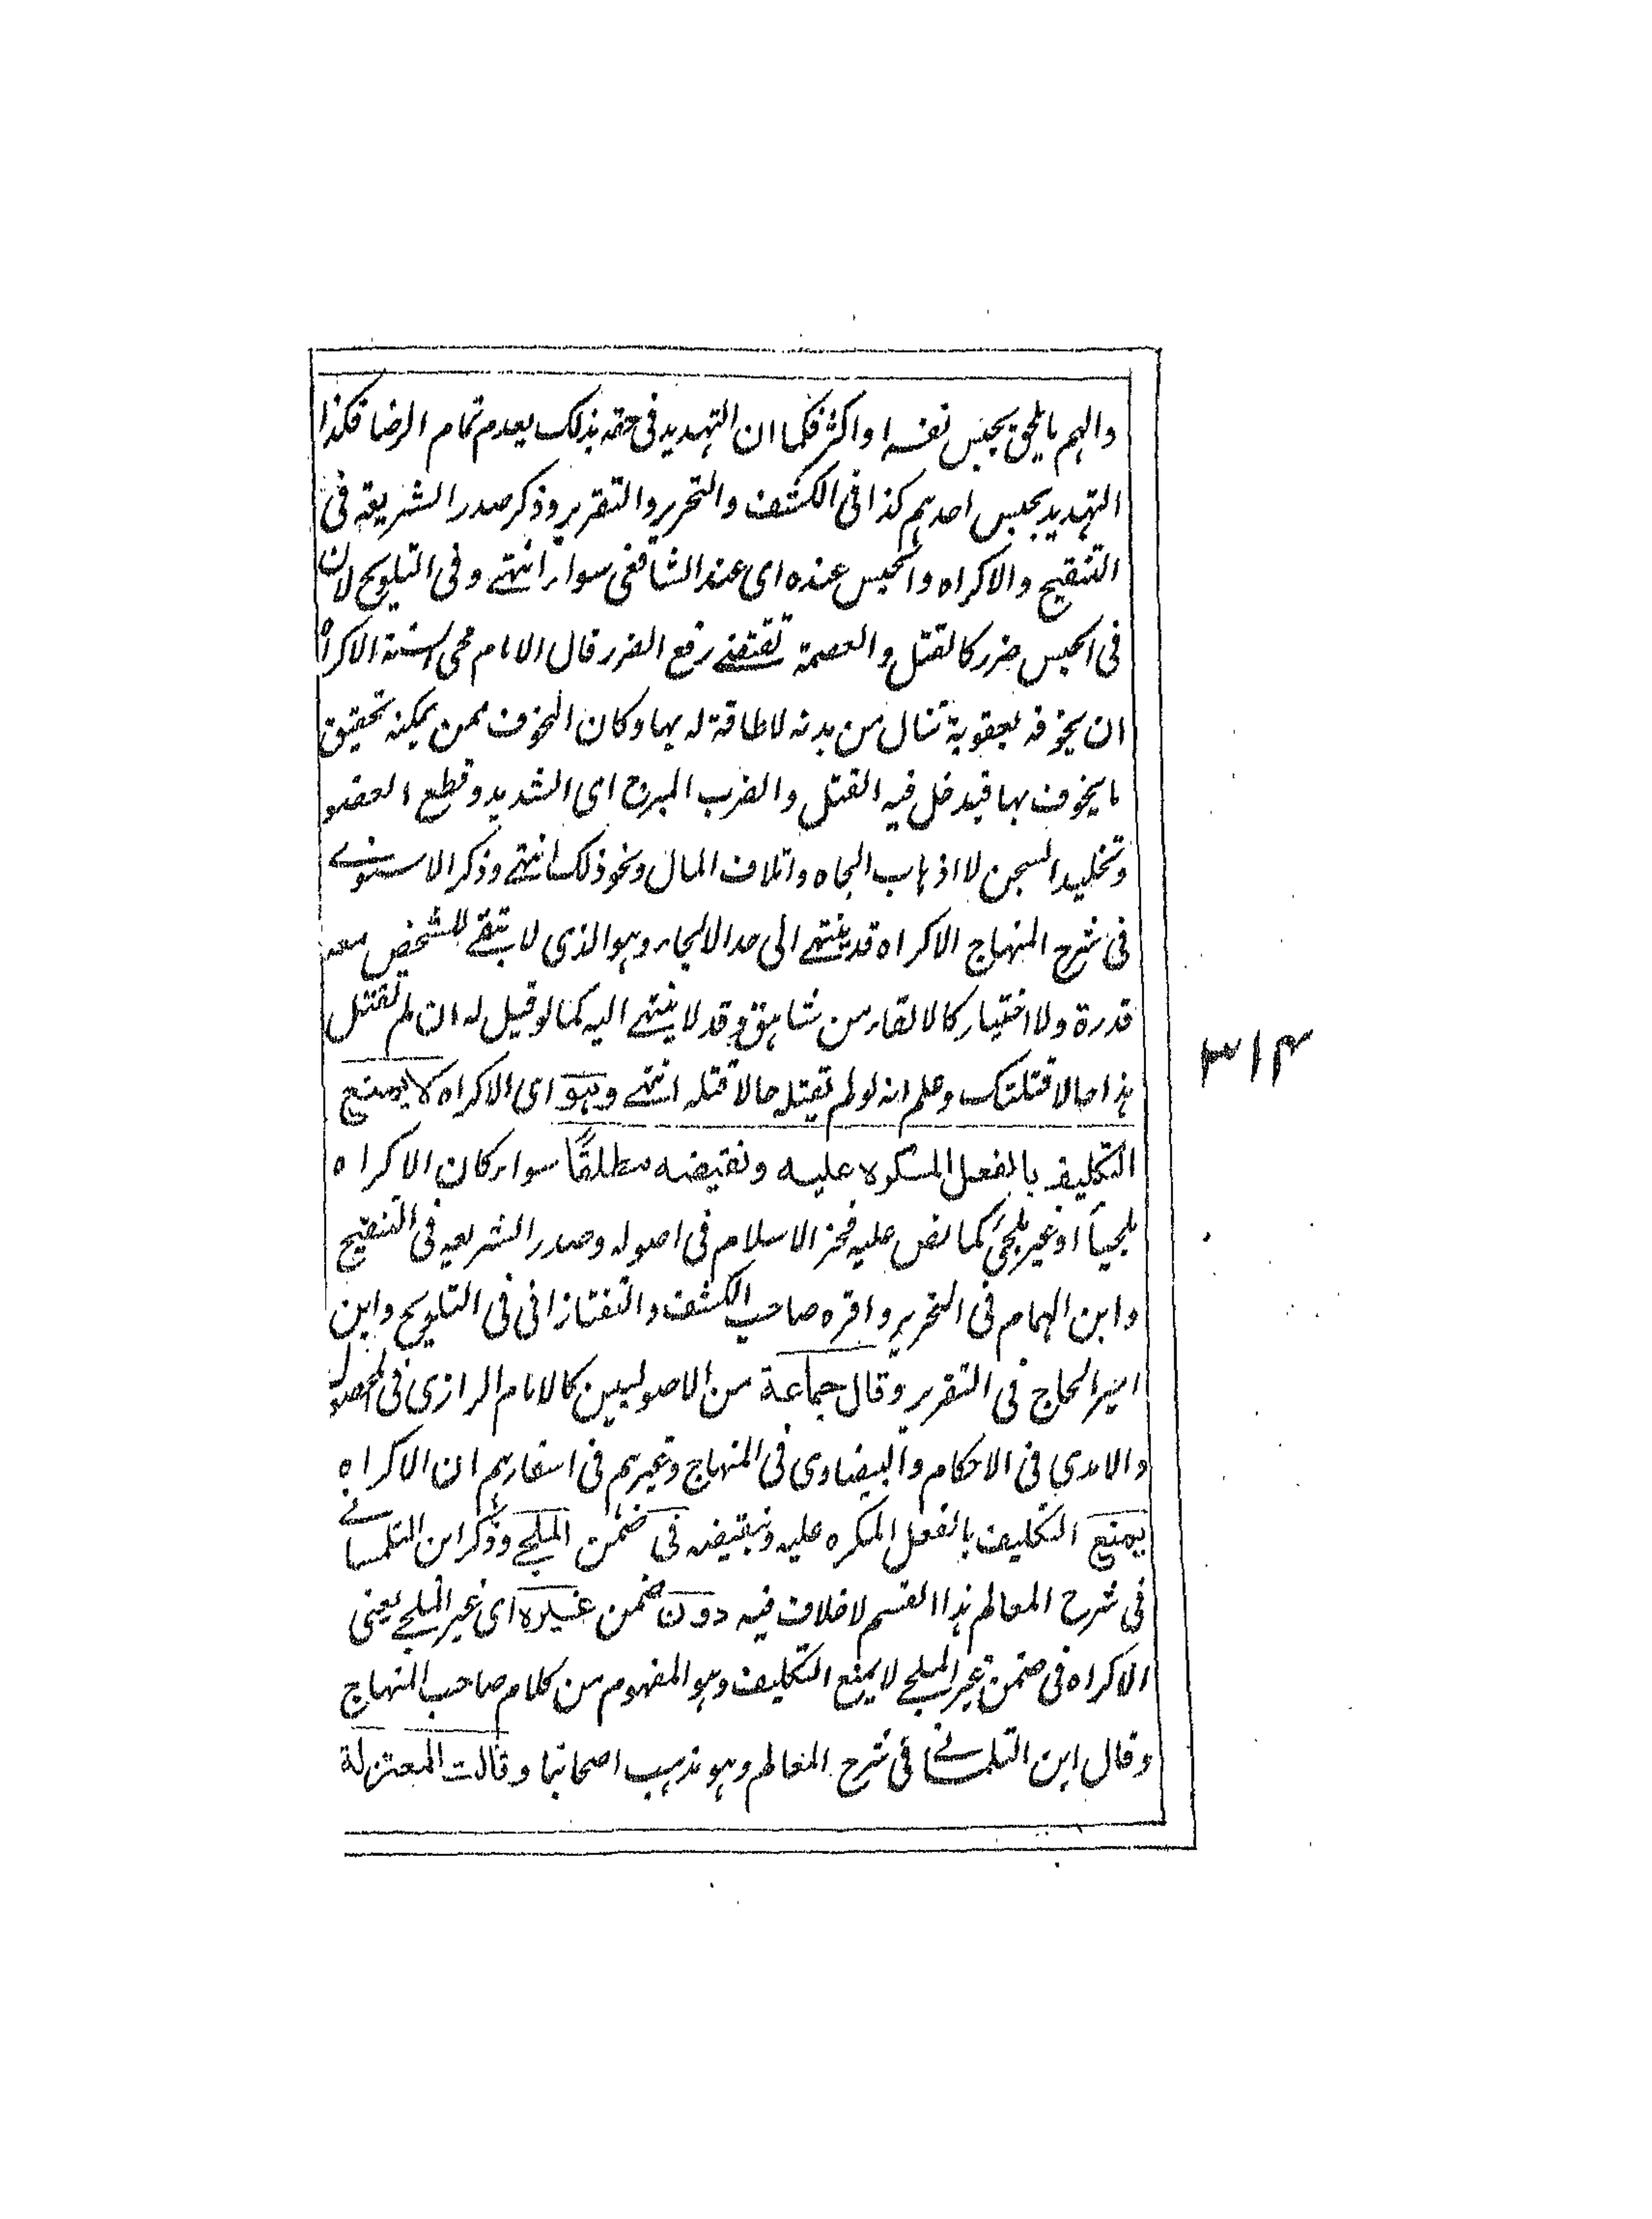 والهم ما يلحق بحبس نفسه او اكثر فكما ان التهديد فى حقه بذلك يعدم تمام الرضا فكذا
التهديد بحبس احدهم كذا فى الكشف والتحرير والتقرير وذكر صدر الشريعة فى
التنقيح والاكراه والحبس عنده اى عند الشافعى سواء انتهے وفى التلويح لان
فى الحبس ضرر كالقتل والعصمة تقتضے رفع الضرر قال الامام محى السنة الاكراه
ان يخوفه بعقوبة تنال من بدنه لا طاقة له بها وكان المخوف ممن يمكنه تحقيق
ما يخوف بها فيدخل فيه القتل والضرب المبرح اى الشديد وقطع العضو
وتخليد السجن لا اذهاب الجاه واتلاف المال ونحو ذلك انتهے وذكر الاسنوے
فى شرح المنهاج الاكراه قد ينتهے الى حد الالجاء وهو الذى لا يبقے للشخص معه
قدرة ولا اختيار كالالقاء من شاهق وقد لا ينتهے اليه كما لو قيل له ان لم تقتل
هذا حالا قتلتك وعلم انه لو لم يقتله حالا قتله انتهے وهو اى الاكراه لا يمنع
التكليف بالفعل المكره عليه ونقيضه مطلقاً سواء كان الاكراه
ملجياً او غير ملجئ كما نص عليه فخر الاسلام فى اصوله وصدر الشريعه فى التنقيح
وابن الهمام فى التحرير واقره صاحب الكشف والتفتازانى فى التلويح وابن
امير الحاج فى التقرير وقال جماعة من الاصوليين كالامام الرازى فى المحصول
والامدى فى الاحكام والبيضاوى فى المنهاج وغيرهم فى اسفارهم ان الاكراه
يمنع التكليف بالفعل المكره عليه وبنقيضه فى ضمن الملجے وذكر ابن التلمسانے
فى شرح المعالم هذا القسم لا خلاف فيه دون ضمن غيره اى غير الملجے يعنى
الاكراه فى ضمن غير الملجے لا يمنع التكليف وهو المفهوم من كلام صاحب المنهاج
وقال ابن التلمسانے فى شرح المعالم وهو مذهب اصحابنا وقالت المعتزلة
٣١٤